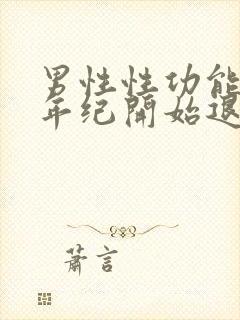 男性性功能
年纪開始退
蕭言